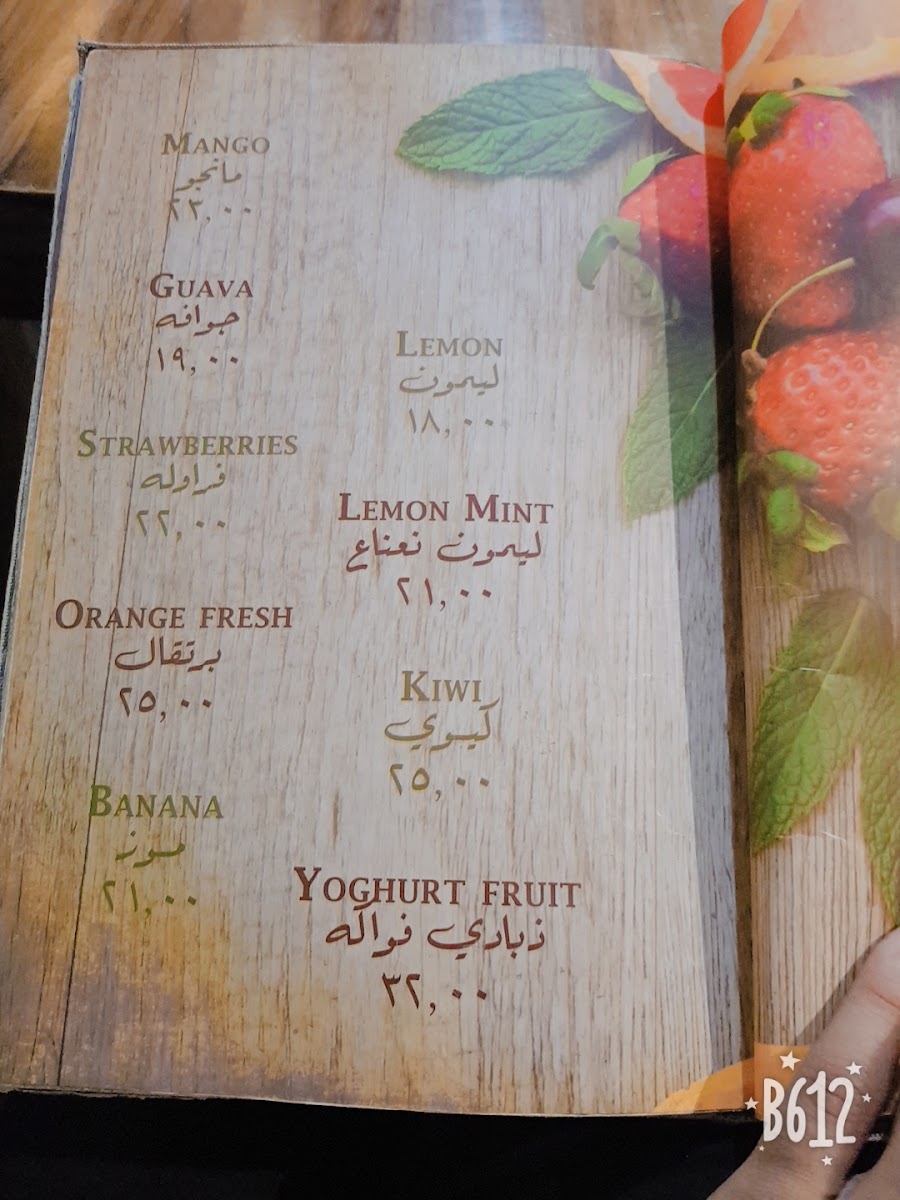 MANGO
مانجو
٢٣,٠٠
GUAVA
جوافه
١٩,٠٠
STRAWBERRIES
فراوله
٢٢,٠٠
ORANGE FRESH
برتقال
٢٥,٠٠
BANANA
موز
٢١,٠٠
LEMON
ليمون
١٨,٠٠
LEMON MINT
ليمون نعناع
٢١,٠٠
KIWI
كيوي
٢٥,٠٠
YOGHURT FRUIT
ذبادي فواكه
٣٢,٠٠
B612